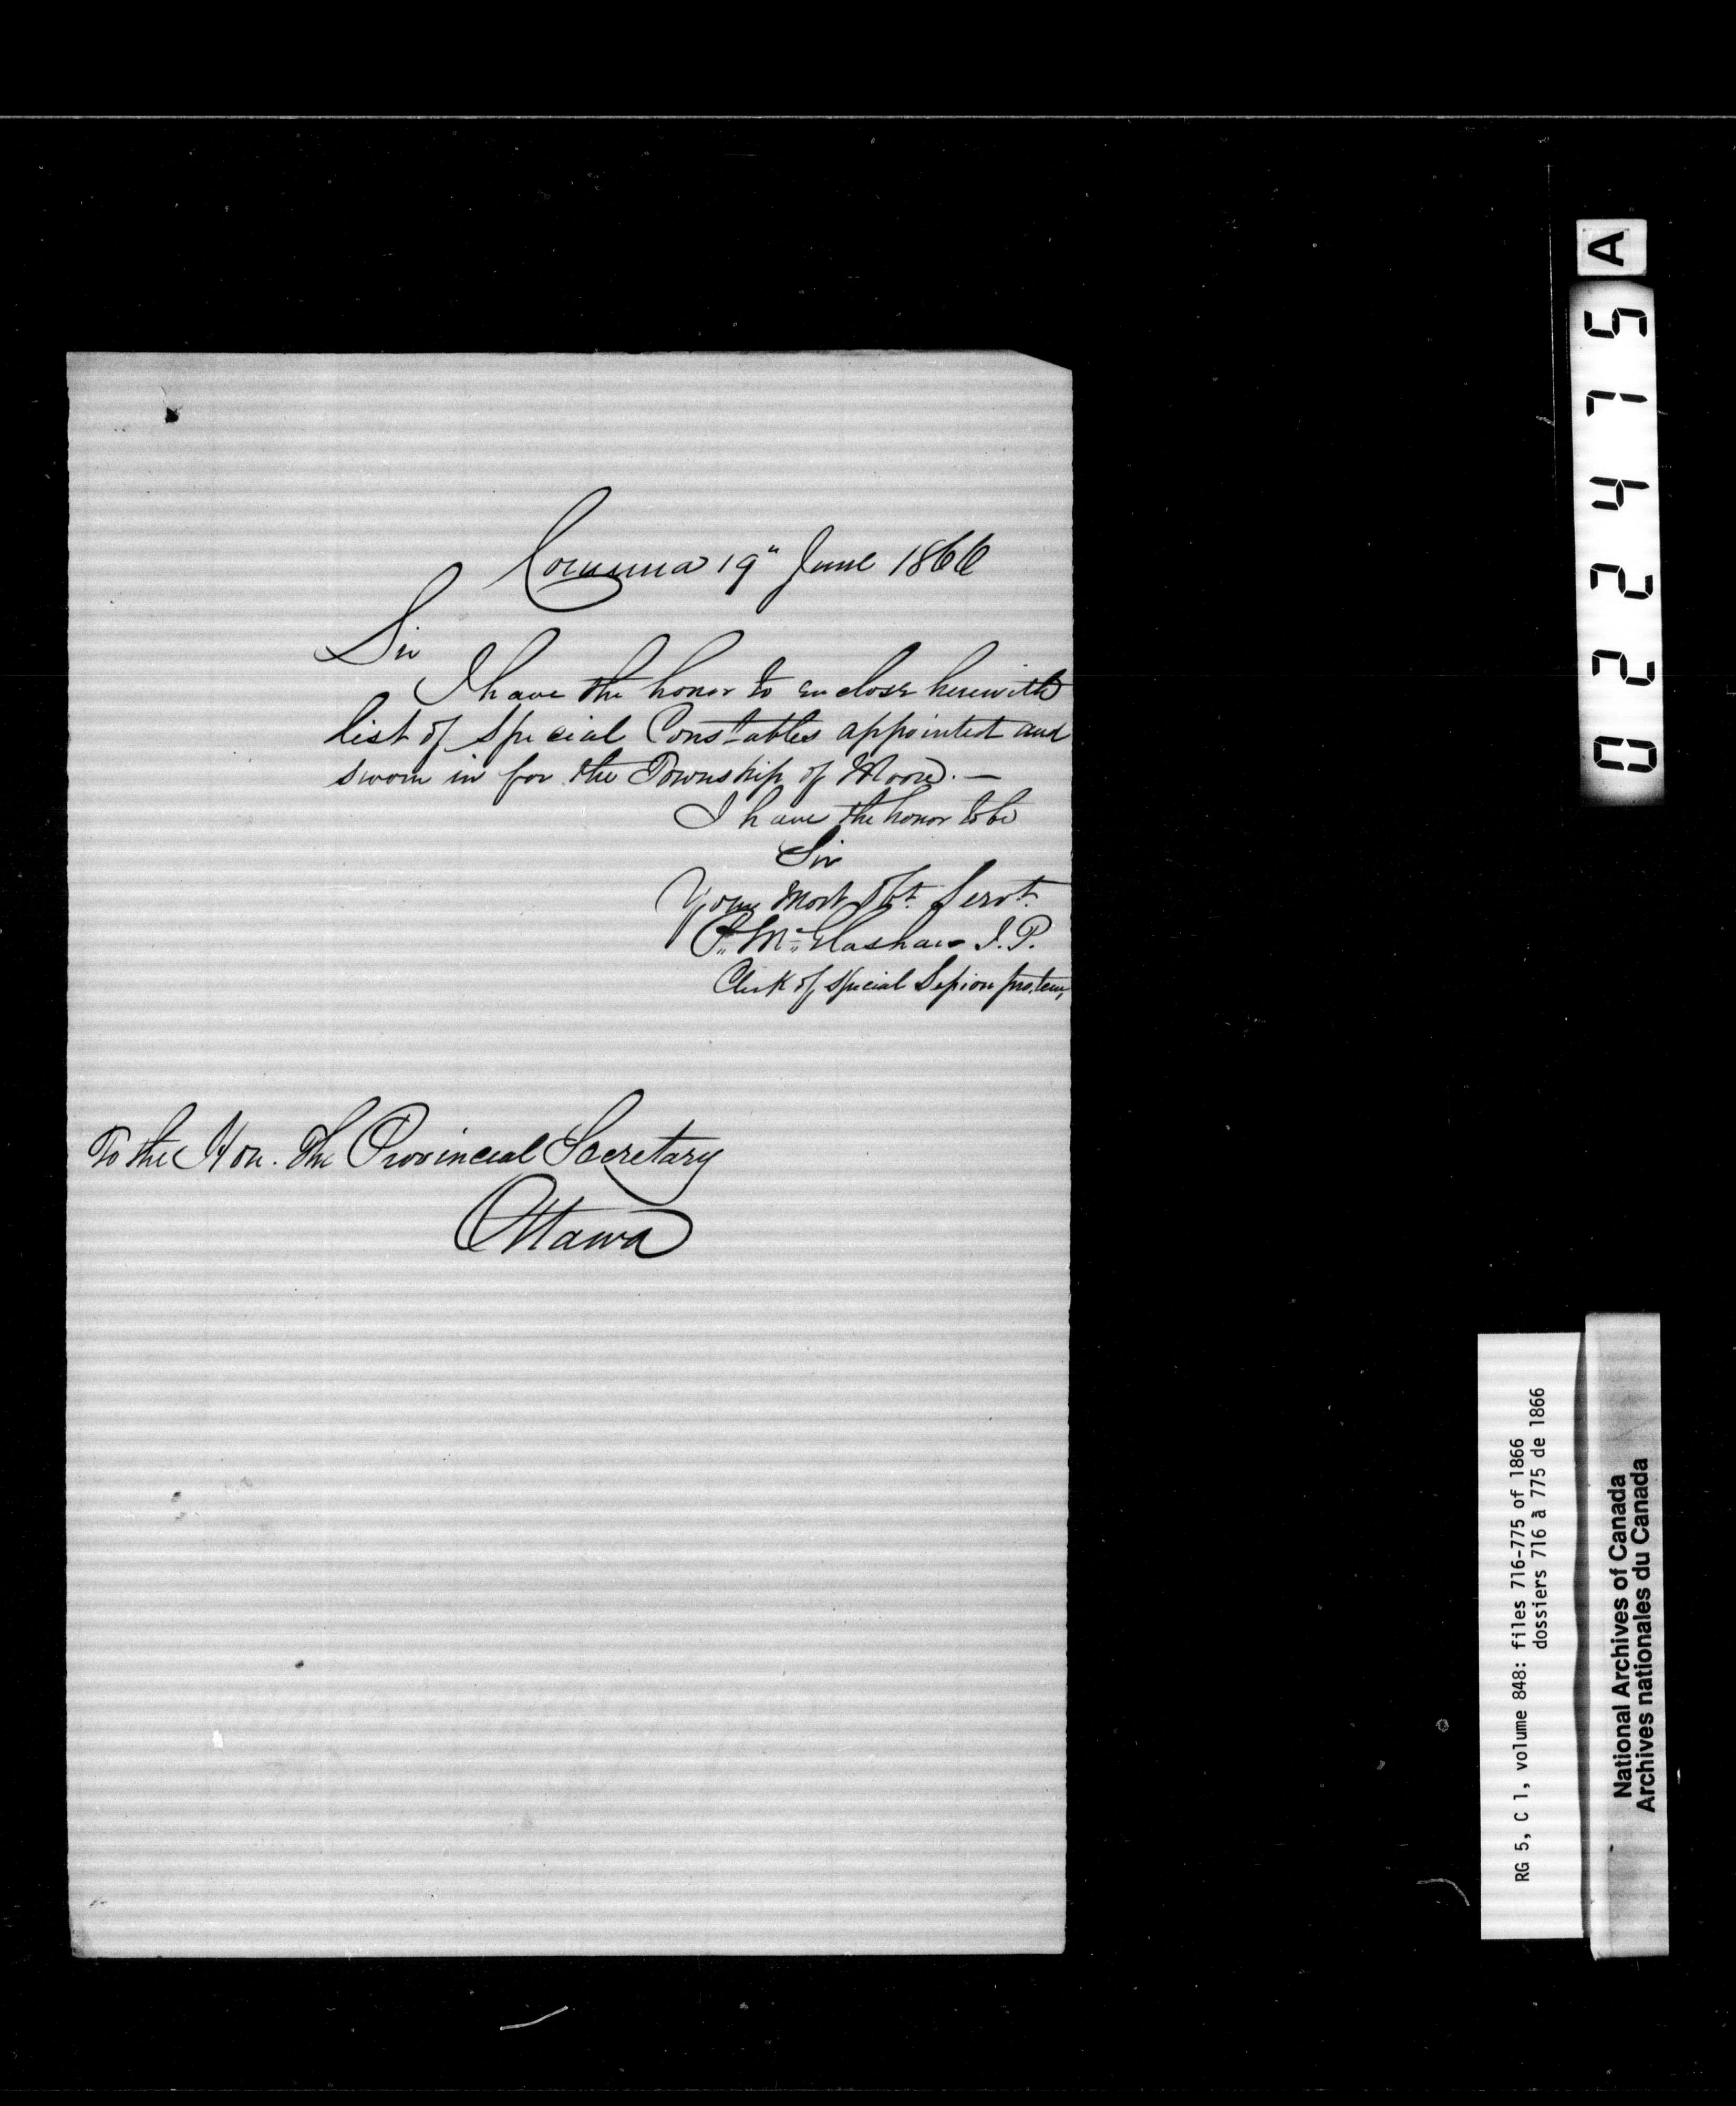 Corunna 19" June 1866
Sir
I have the honor to enclose herewith
list of Special Constables appointed and
sworn in for the Township of Moore. —
I have the honor to be
Sir
Your most Obt. Servt.
P. Mc Glashan J.P.
Clerk of Special Session pro. tem,
To the Hon. The Provincial Secretary
Ottawa
022475 A
RG 5, C 1, volume 848: files 716-775 of 1866
dossiers 716 à 775 de 1866
National Archives of Canada
Archives nationales du Canada